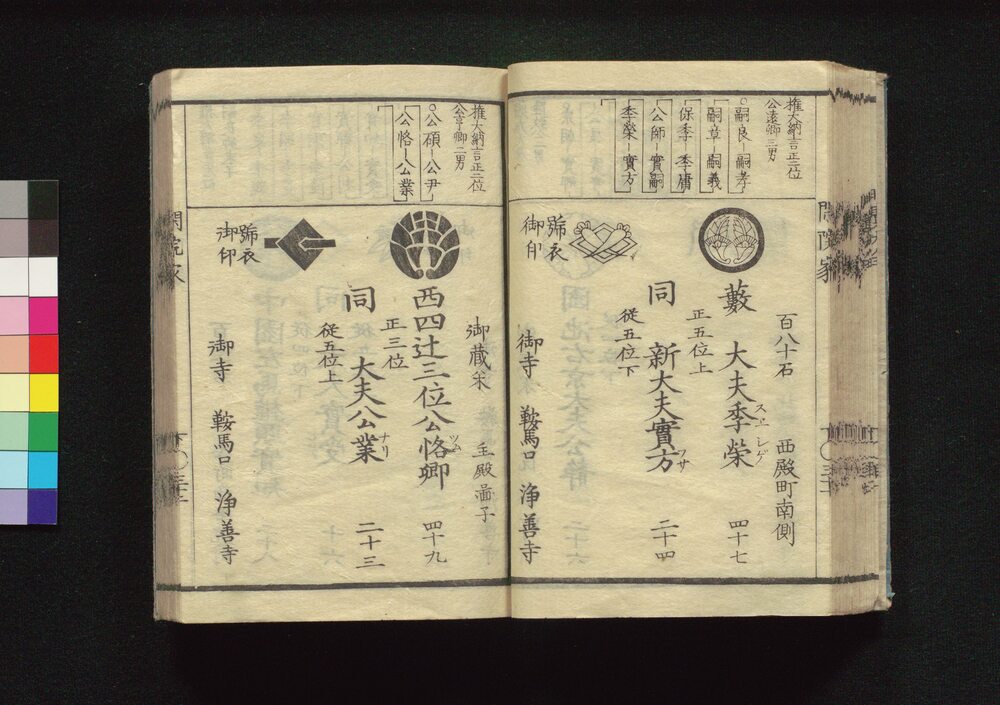 閑院家
権大納言正二位
公遠卿三男
○嗣良－嗣孝
嗣章－嗣義
保季－季庸
公師－實嗣
季榮－實方
百八十石 西殿町南側
藪 大夫季榮 四十七
スエシゲ
正五位上
同 新大夫實方 二十四
フサ
從五位下
號衣
御印
御寺 鞍馬口 浄善寺
権大納言正二位
公亨卿二男
○公碩－公尹
公恪－公業
御蔵米 主殿図子
西四辻三位公恪卿 四十九
ツム
正三位
同 大夫公業 二十三
ナリ
從五位上
號衣
御印
御寺 鞍馬口 浄善寺
閑院家